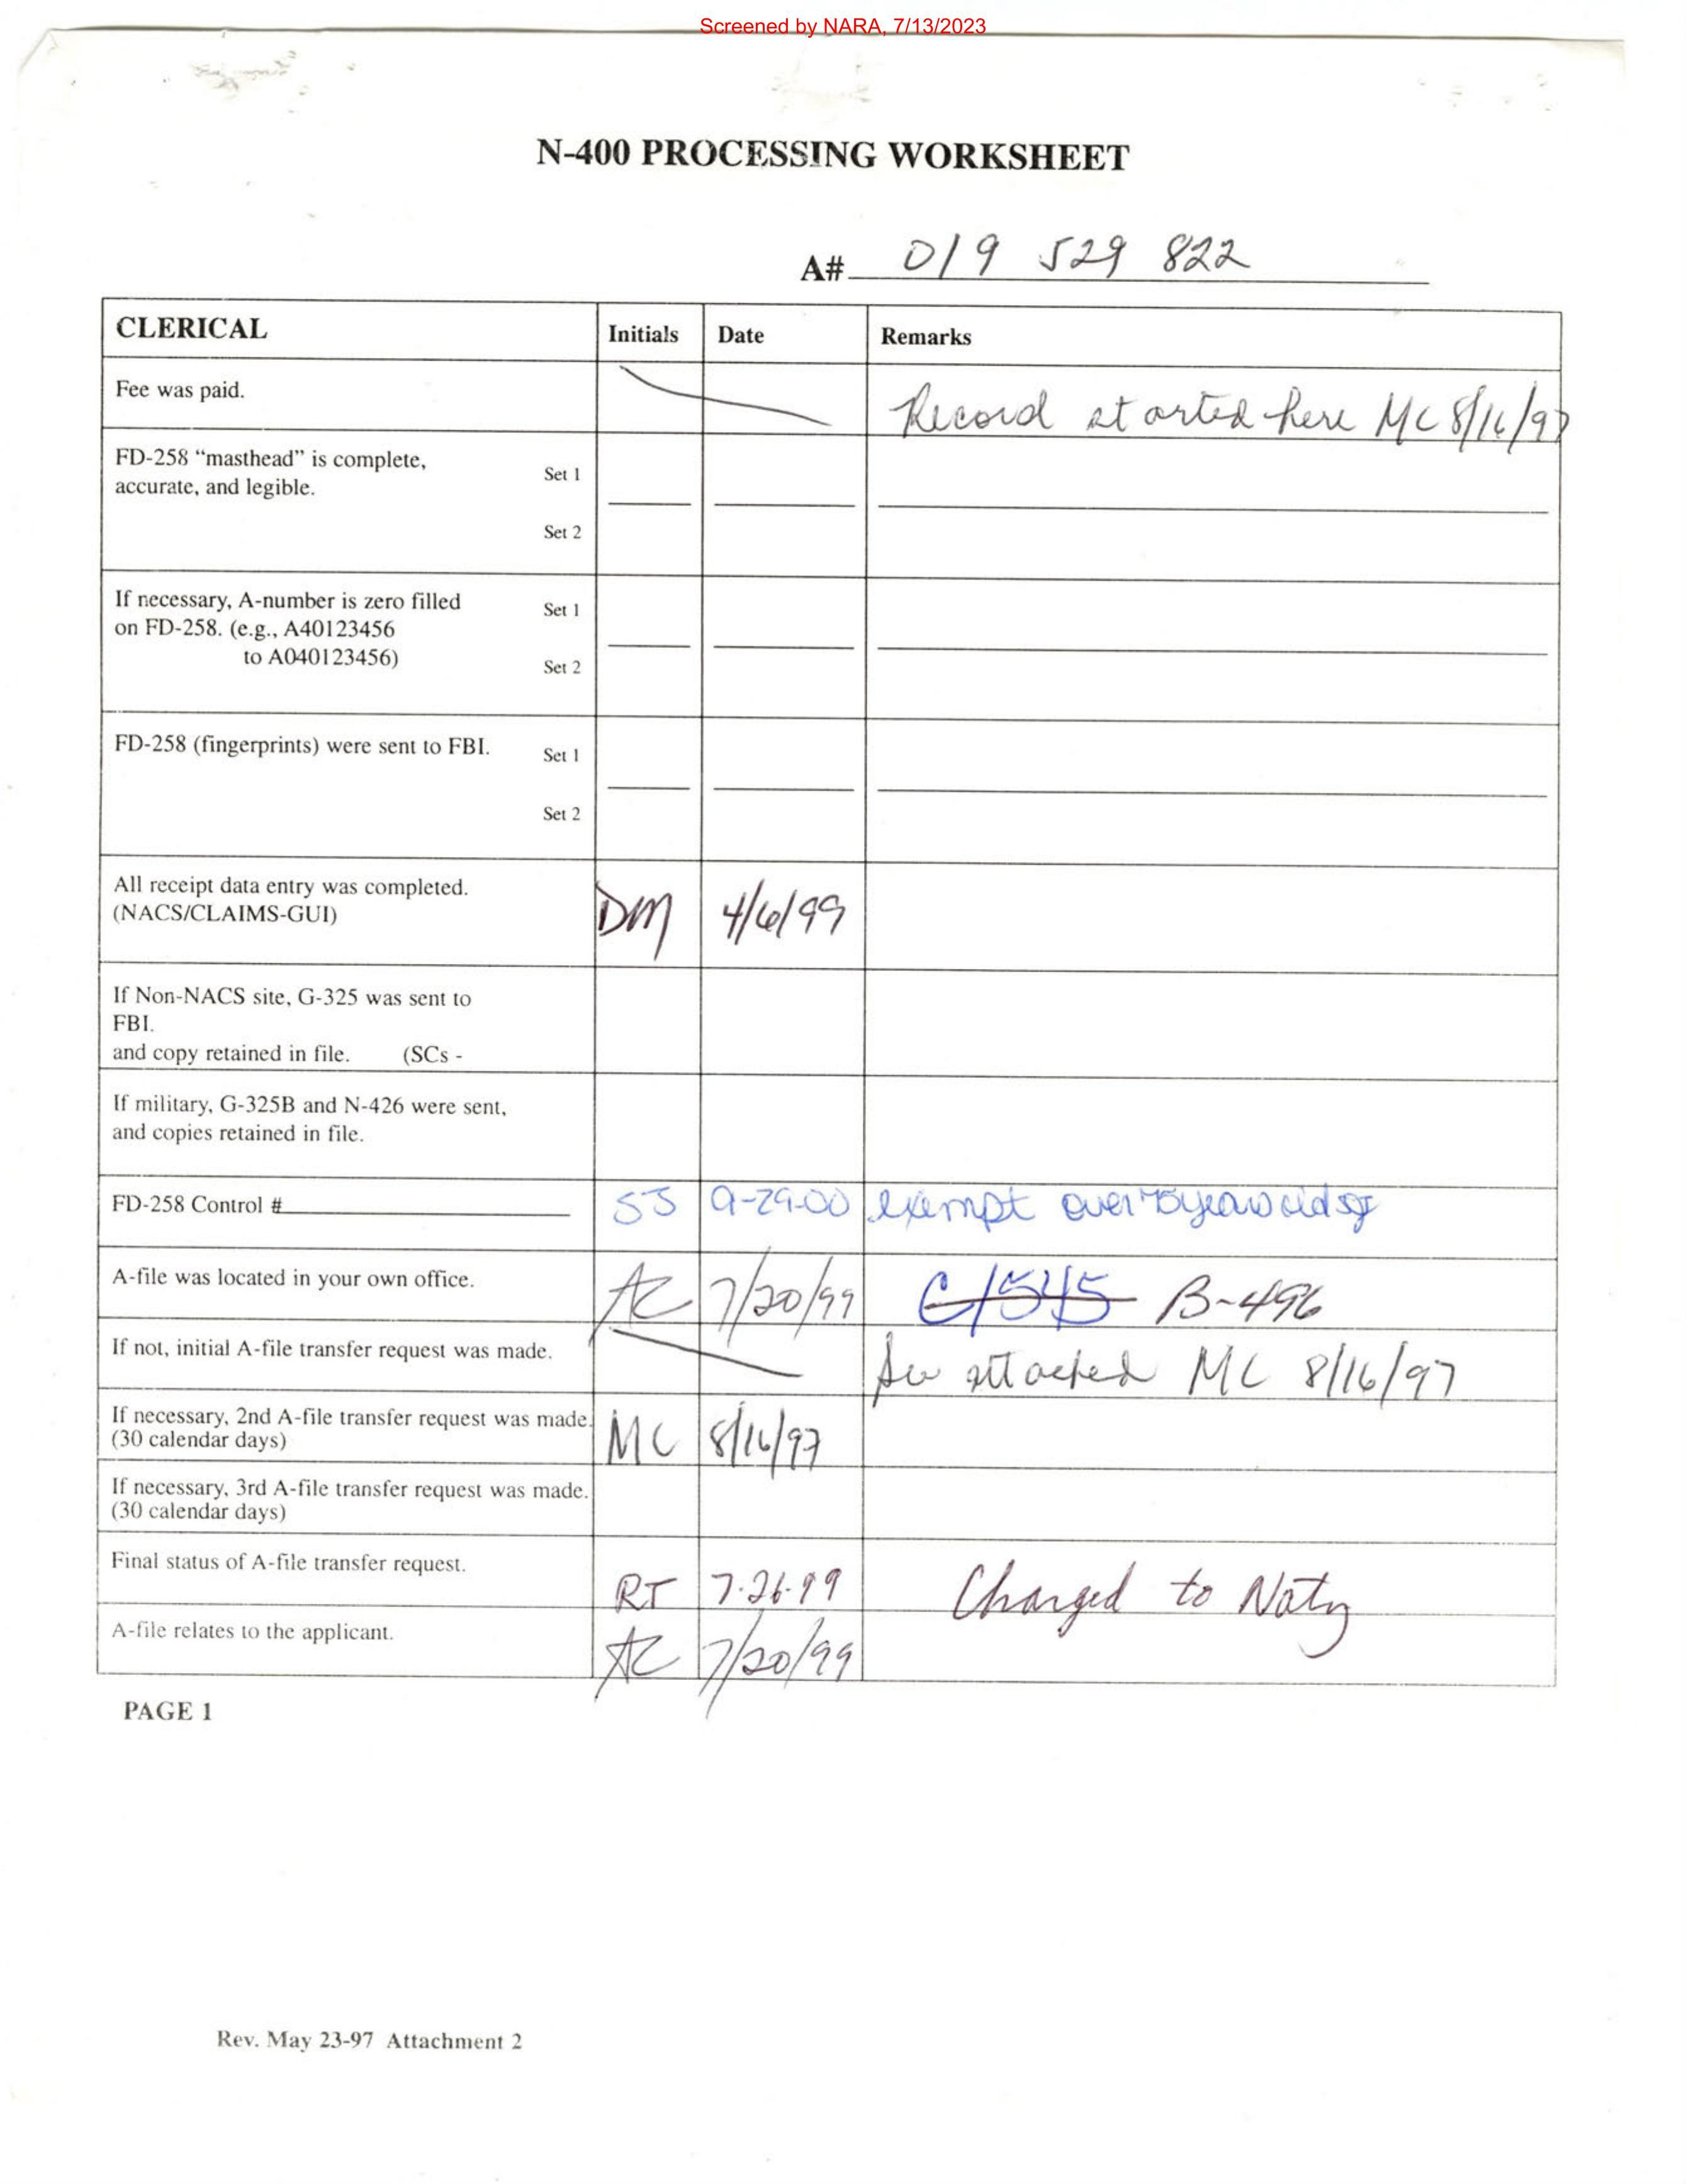 Screened by NARA, 7/13/2023
N-400 PROCESSING WORKSHEET
A# 019 529 822
CLERICAL Initials Date Remarks
Fee was paid. Record started here MC 8/16/97
FD-258 “masthead” is complete, Set 1
accurate, and legible.
Set 2
If necessary, A-number is zero filled Set 1
on FD-258. (e.g., A40123456
to A040123456) Set 2
FD-258 (fingerprints) were sent to FBI. Set 1
Set 2
All receipt data entry was completed. DM 4/6/99
(NACS/CLAIMS-GUI)
If Non-NACS site, G-325 was sent to
FBI.
and copy retained in file. (SCs -
If military, G-325B and N-426 were sent,
and copies retained in file.
FD-258 Control # SJ 9-29-00 exempt over 75 years old SJ
A-file was located in your own office. AC 7/20/99 C/545 B-496
If not, initial A-file transfer request was made. See attached MC 8/16/97
If necessary, 2nd A-file transfer request was made. MC 8/16/97
(30 calendar days)
If necessary, 3rd A-file transfer request was made.
(30 calendar days)
Final status of A-file transfer request. RT 7-26-99 Charged to Natz
A-file relates to the applicant. AC 7/20/99
PAGE 1
Rev. May 23-97 Attachment 2